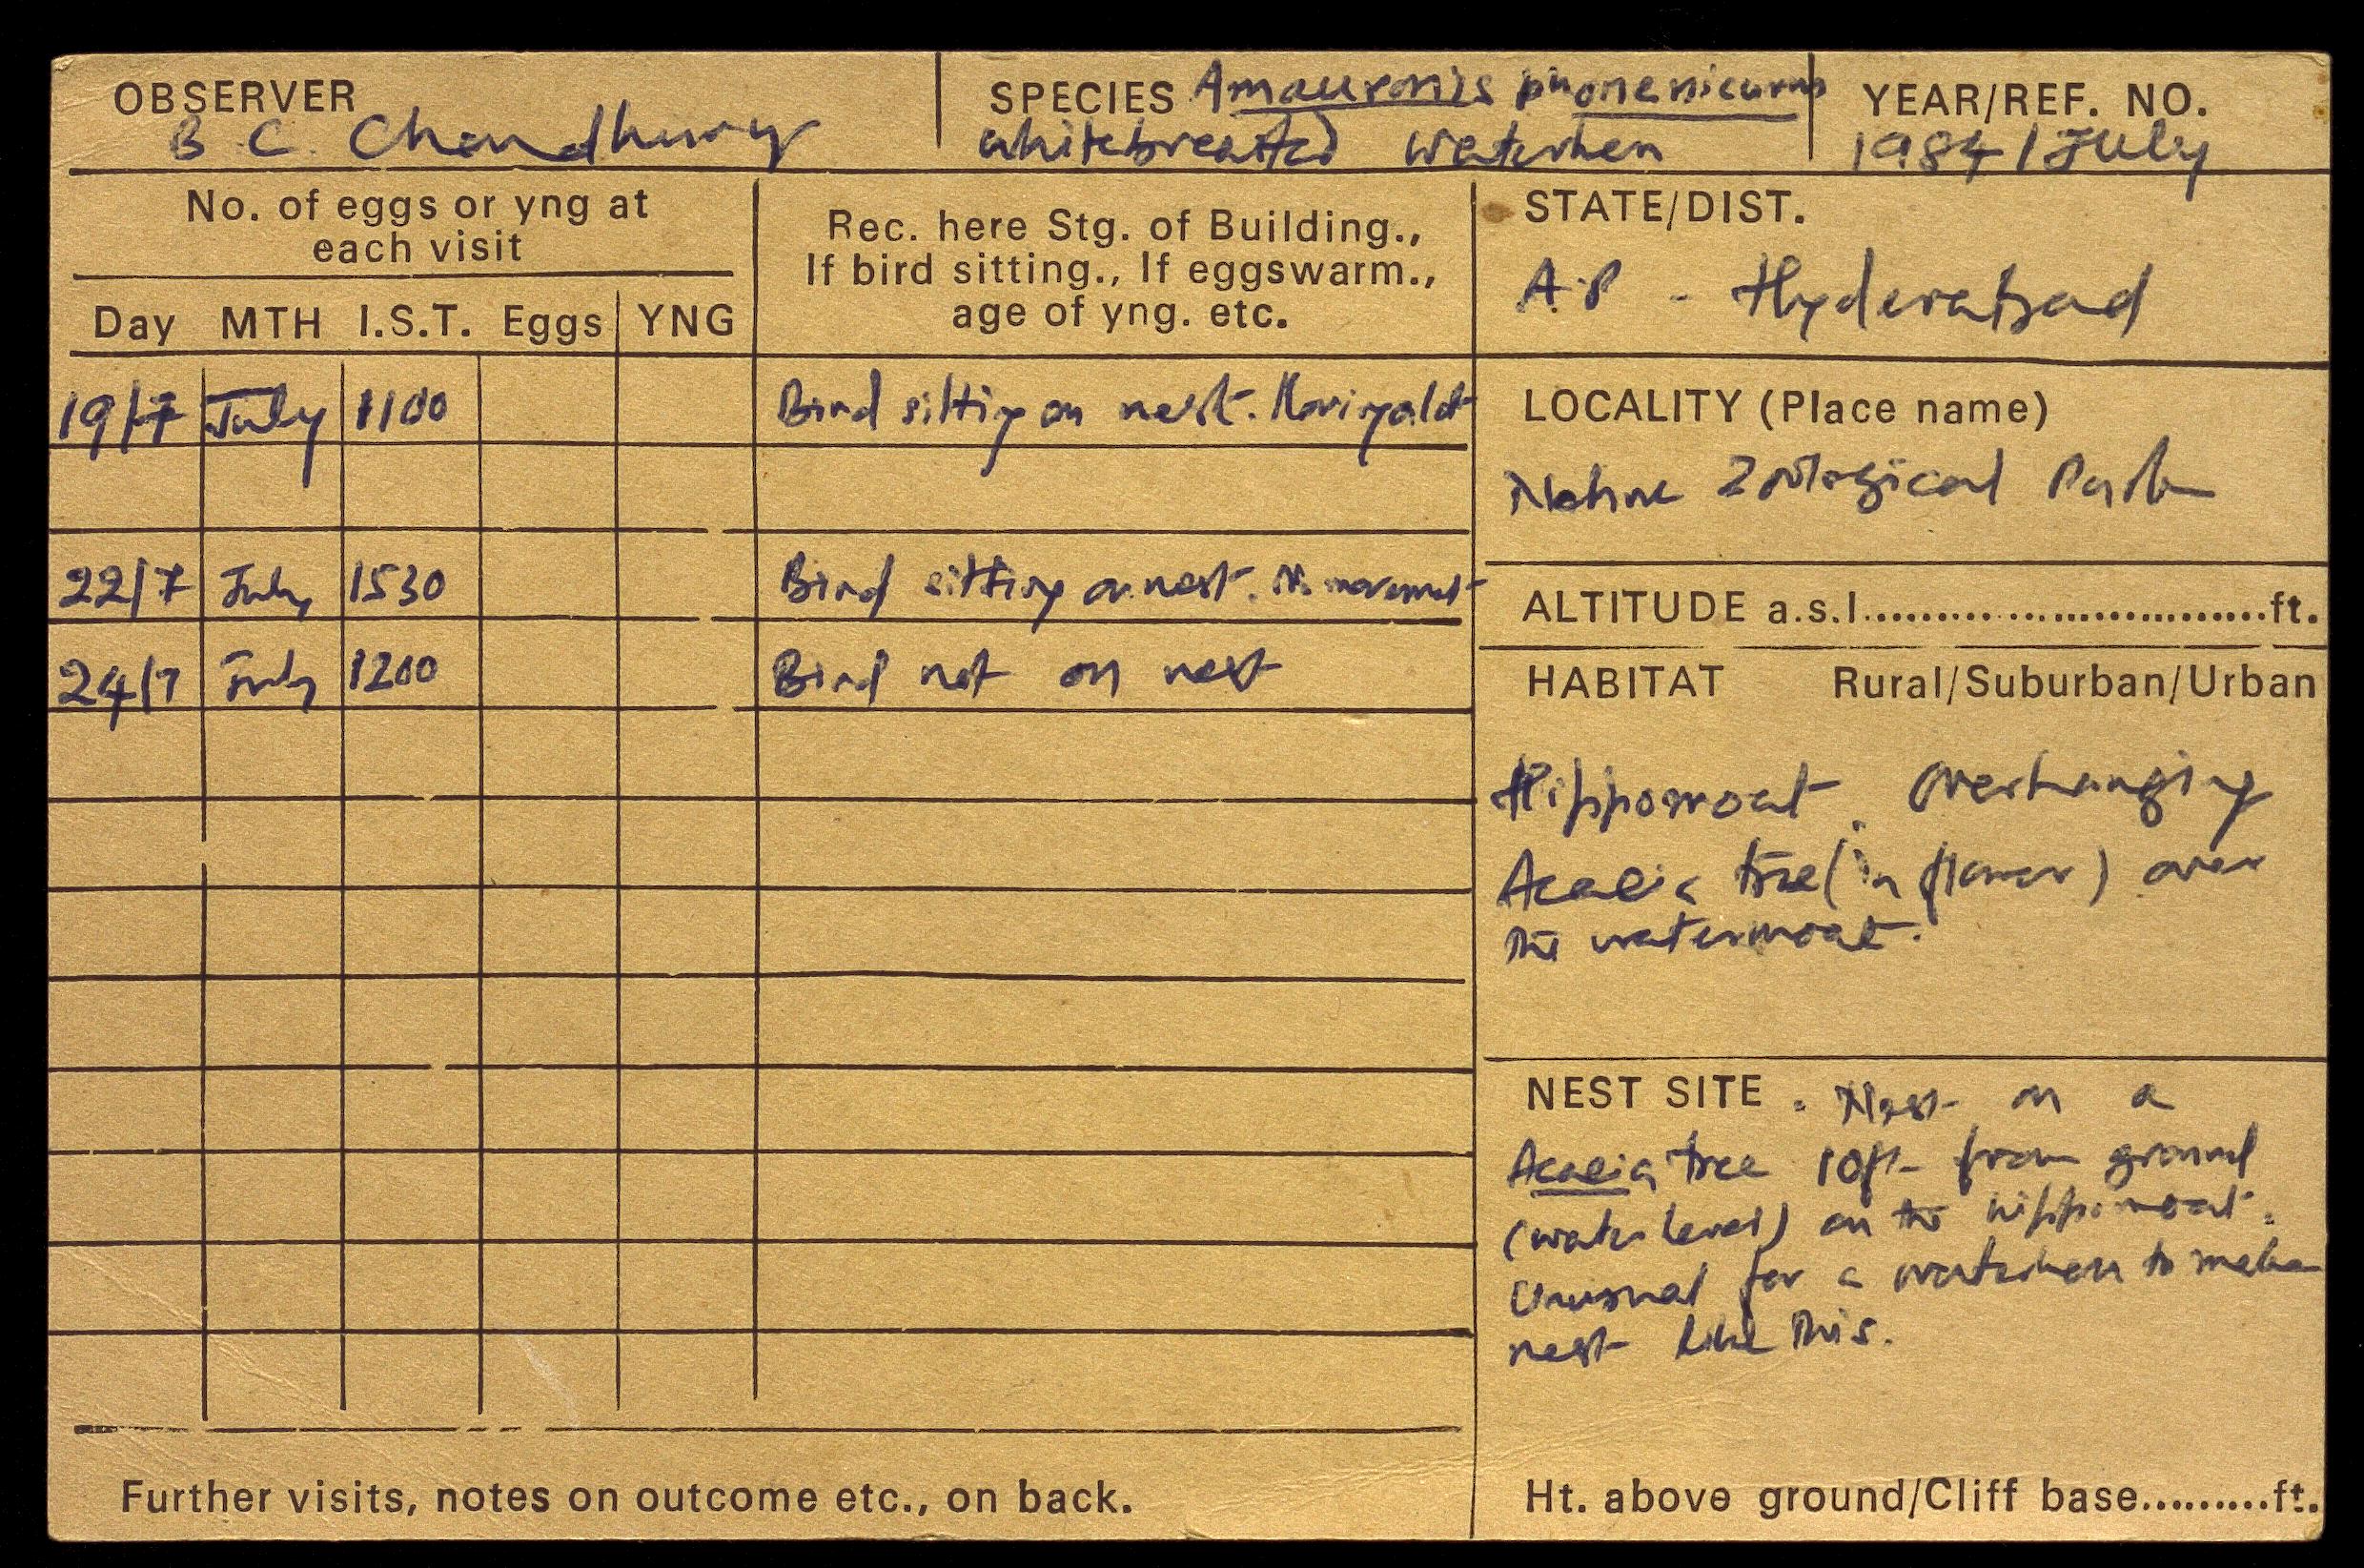 OBSERVER
B. C. Choudhury
SPECIES Amaurornis phoenicurus
whitebreasted waterhen
YEAR/REF. NO.
1984 / July
No. of eggs or yng at
each visit
Day MTH I.S.T. Eggs YNG
Rec. here Stg. of Building.,
If bird sitting., If eggswarm.,
age of yng. etc.
STATE/DIST.
A.P - Hyderabad
19/7 July 1100 Bird sitting on nest.
22/7 July 1530 Bird sitting on nest. No movement
24/7 July 1200 Bird not on nest
LOCALITY (Place name)
Nehru Zoological Park
ALTITUDE a.s.l..............................ft.
HABITAT Rural/Suburban/Urban
Hippomoat. Overhanging
Acacia tree (in flower) over
the watermoat.
NEST SITE . Nest on a
Acacia tree 10ft from ground
(water level) on the hippomoat.
Unusual for a waterhen to make
nest like this.
Further visits, notes on outcome etc., on back.
Ht. above ground/Cliff base..........ft.